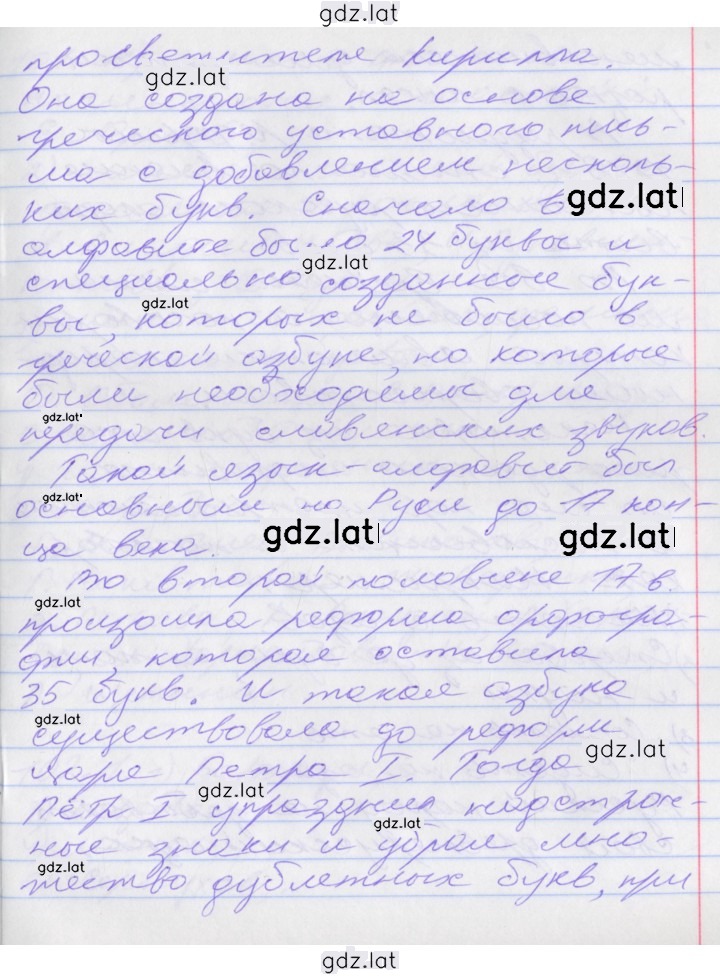 gdz.lat
просветителя Кирилла.
gdz.lat
Она создана на основе
греческого уставного пись-
ма с добавлением несколь-
ких букв. Сначала в
gdz.lat
алфавите было 24 буквы и
gdz.lat
специально созданные бук-
gdz.lat
вы, которых не было в
греческой азбуке, но которые
были необходимы для
gdz.lat
передачи славянских звуков.
Такой язык-алфавит был
gdz.lat
основным на Руси до 17 кон-
ца века.
gdz.lat
gdz.lat
Во второй половине 17 в.
gdz.lat
произошла реформа орфогра-
фии, которая оставила
35 букв. И такая азбука
gdz.lat
существовала до реформ
gdz.lat
царя Петра I. Тогда
gdz.lat
Пётр I упразднил надстроч-
gdz.lat
ные знаки и убрал мно-
gdz.lat
жество дублетных букв, при
gdz.lat